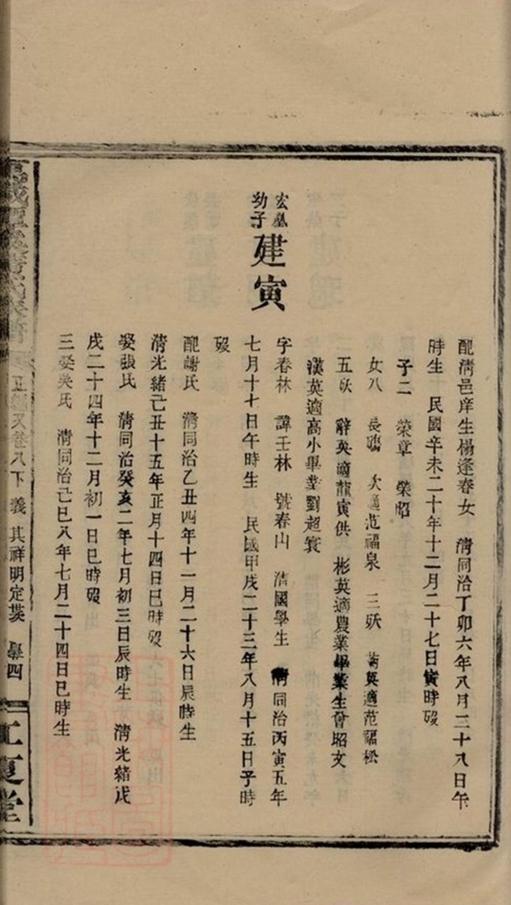 配清邑庠生楊逢春女　清同治丁卯六年八月二十八日午
時生　民國辛未二十年十二月二十七日寅時歿
子二　榮章　榮昭
女八　長鴒　次適范福泉　三殀　菊英適范福松
五殀　辭英適龍寅供　彬英適農業畢業生曾昭文
漢英適高小畢業劉超寰
宏
幼子
建寅
字春林　諱壬林　號春山　清國學生　清同治丙寅五年
七月十七日午時生　民國甲戌二十三年八月十五日子時
歿
配謝氏　清同治乙丑四年十一月二十六日辰時生
清光緒己丑十五年正月十四日巳時歿
娶張氏　清同治癸亥二年七月初三日辰時生　清光緒戊
戌二十四年十二月初一日巳時歿
三娶吳氏　清同治己巳八年七月二十四日巳時生
卷八下　義　其祥明定
江夏堂